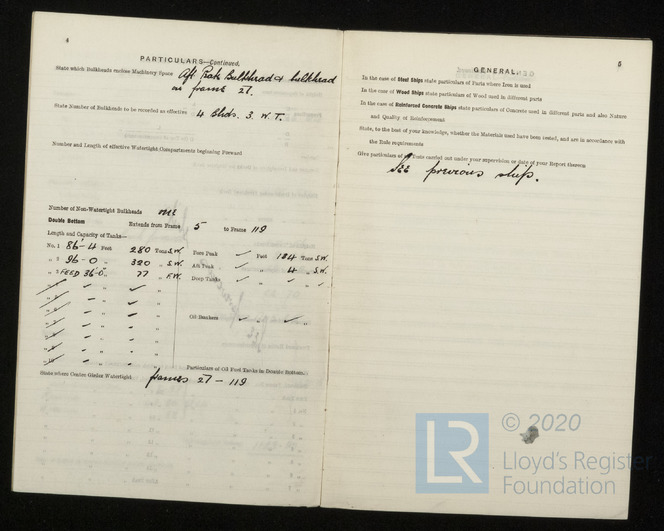 4
PARTICULARS—Continued.
State which Bulkheads enclose Machinery Space Aft Peak Bulkhead & bulkhead
on frame 27.
State Number of Bulkheads to be recorded as effective 4 Bhds. 3. W.T.
Number and Length of effective Watertight Compartments beginning Forward
Number of Non-Watertight Bulkheads one
Double Bottom Extends from Frame 5 to Frame 119
Length and Capacity of Tanks—
No. 1 86'-4 Feet 280 Tons S.W. Fore Peak ✓ Feet 184 Tons S.W.
" 2 96-0 " 320 " S.W. Aft Peak ✓ " 4 " S.W.
" 3 FEED 36-0 " 77 " F.W. Deep Tanks ✓ " ✓ " ✓
Oil Bunkers ✓ " ✓ "
Particulars of Oil Fuel Tanks in Double Bottom.
State where Centre Girder Watertight frames 27 – 119
5
GENERAL.
In the case of Steel Ships state particulars of Parts where Iron is used
In the case of Wood Ships state particulars of Wood used in different parts
In the case of Reinforced Concrete Ships state particulars of Concrete used in different parts and also Nature
and Quality of Reinforcement
State, to the best of your knowledge, whether the Materials used have been tested, and are in accordance with
the Rule requirements
Give particulars of Tests carried out under your supervision or date of your Report thereon
See previous ship.
LR
© 2020
Lloyd's Register
Foundation